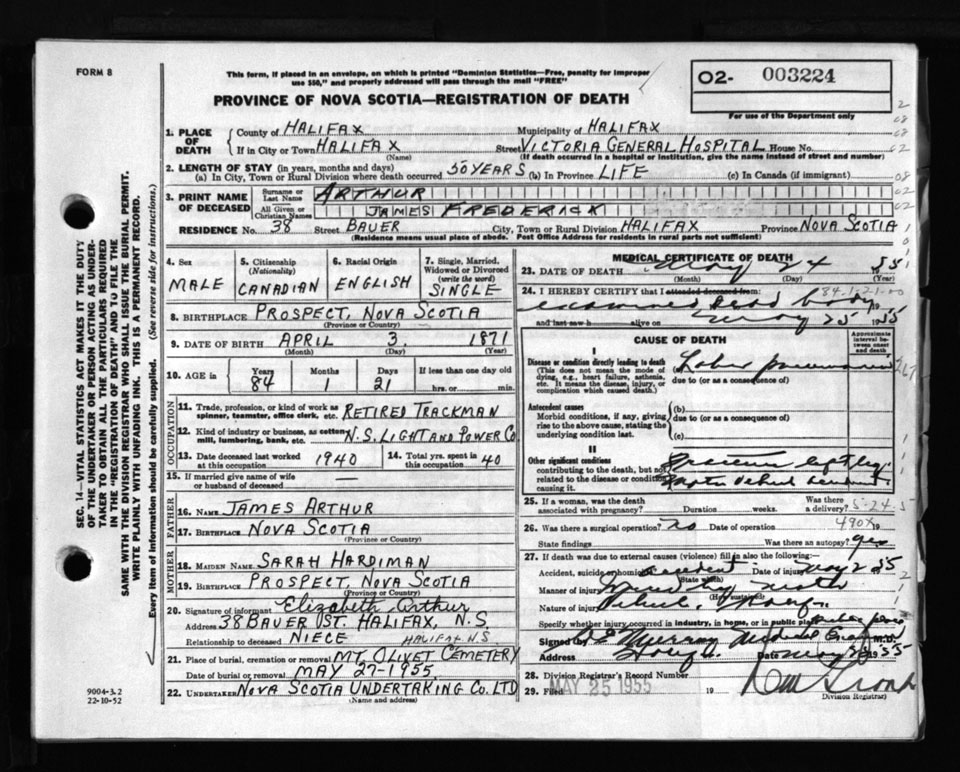 FORM 8
This form, if placed in an envelope, on which is printed "Dominion Statistics—Free, penalty for improper
use $50," and properly addressed will pass through the mail "FREE"
PROVINCE OF NOVA SCOTIA—REGISTRATION OF DEATH
02- 003224
For use of the Department only
SEC. 14—VITAL STATISTICS ACT MAKES IT THE DUTY
OF THE UNDERTAKER OR PERSON ACTING AS UNDER-
TAKER TO OBTAIN ALL THE PARTICULARS REQUIRED
IN THE "REGISTRATION OF DEATH" AND TO FILE THE
SAME WITH THE DIVISION REGISTRAR WHO SHALL ISSUE THE BURIAL PERMIT.
WRITE PLAINLY WITH UNFADING INK. THIS IS A PERMANENT RECORD.
Every item of information should be carefully supplied. (See reverse side for instructions.)
1. PLACE OF DEATH
County of HALIFAX Municipality of HALIFAX
If in City or Town HALIFAX Street VICTORIA GENERAL HOSPITAL House No.
(Name) (If death occurred in a hospital or institution, give the name instead of street and number)
2. LENGTH OF STAY (in years, months and days)
(a) In City, Town or Rural Division where death occurred 50 YEARS (b) In Province LIFE (c) In Canada (if immigrant)
3. PRINT NAME OF DECEASED
Surname or Last Name ARTHUR
All Given or Christian Names JAMES FREDERICK
RESIDENCE No. 38 Street BAUER City, Town or Rural Division HALIFAX Province NOVA SCOTIA
(Residence means usual place of abode. Post Office Address for residents in rural parts not sufficient)
4. Sex
MALE
5. Citizenship
(Nationality)
CANADIAN
6. Racial Origin
ENGLISH
7. Single, Married,
Widowed or Divorced
(write the word)
SINGLE
8. BIRTHPLACE PROSPECT, NOVA SCOTIA
(Province or Country)
9. DATE OF BIRTH APRIL 3. 1871
(Month) (Day) (Year)
10. AGE in Years 84 Months 1 Days 21 If less than one day old
hrs. or min.
OCCUPATION
11. Trade, profession, or kind of work as
spinner, teamster, office clerk, etc. RETIRED TRACKMAN
12. Kind of industry or business, as cotton
mill, lumbering, bank, etc. N.S. LIGHT AND POWER Co.
13. Date deceased last worked
at this occupation 1940
14. Total yrs. spent in
this occupation 40
15. If married give name of wife
or husband of deceased —
FATHER
16. NAME JAMES ARTHUR
17. BIRTHPLACE NOVA SCOTIA
(Province or Country)
MOTHER
18. MAIDEN NAME SARAH HARDIMAN
19. BIRTHPLACE PROSPECT, NOVA SCOTIA
(Province or Country)
20. Signature of informant Elizabeth Arthur
Address 38 BAUER ST. HALIFAX, N.S.
Relationship to deceased NIECE HALIFAX N.S
21. Place of burial, cremation or removal MT. OLIVET CEMETERY
Date of burial or removal MAY 27-1955
22. UNDERTAKER NOVA SCOTIA UNDERTAKING CO. LTD
(Name and address)
9004-3.2
22-10-52
MEDICAL CERTIFICATE OF DEATH
23. DATE OF DEATH May 24 1955
(Month) (Day) (Year)
24. I HEREBY CERTIFY that I attended deceased from:
examined dead body 19
and last saw h alive on May 25 1955
CAUSE OF DEATH
Approximate
interval between
onset and death
I
Disease or condition directly leading to death
(This does not mean the mode of
dying, e.g., heart failure, asthenia,
etc. It means the disease, injury, or
complication which caused death.)
Lobar pneumonia
due to (or as a consequence of)
Antecedent causes
Morbid conditions, if any, giving
rise to the above cause, stating the
underlying condition last.
(b)
due to (or as a consequence of)
(c)
II
Other significant conditions
contributing to the death, but not
related to the disease or condition
causing it.
Fracture left leg
Motor Vehicle accident
25. If a woman, was the death
associated with pregnancy? Duration weeks. Was there
a delivery? 5-24-5
26. Was there a surgical operation? no Date of operation 490X 19
State findings Was there an autopsy? yes
27. If death was due to external causes (violence) fill in also the following:—
Accident, suicide or homicide Accident Date of injury May 2 1955
(State which)
Manner of injury Struck by motor
(How sustained)
Nature of injury Vehicle,
Specify whether injury occurred in industry, in home, or in public place public place
Signed by Murray Medical Examiner M.D.
Address Date May 1955
28. Division Registrar's Record Number
29. Filed MAY 25 1955 19
Division Registrar)